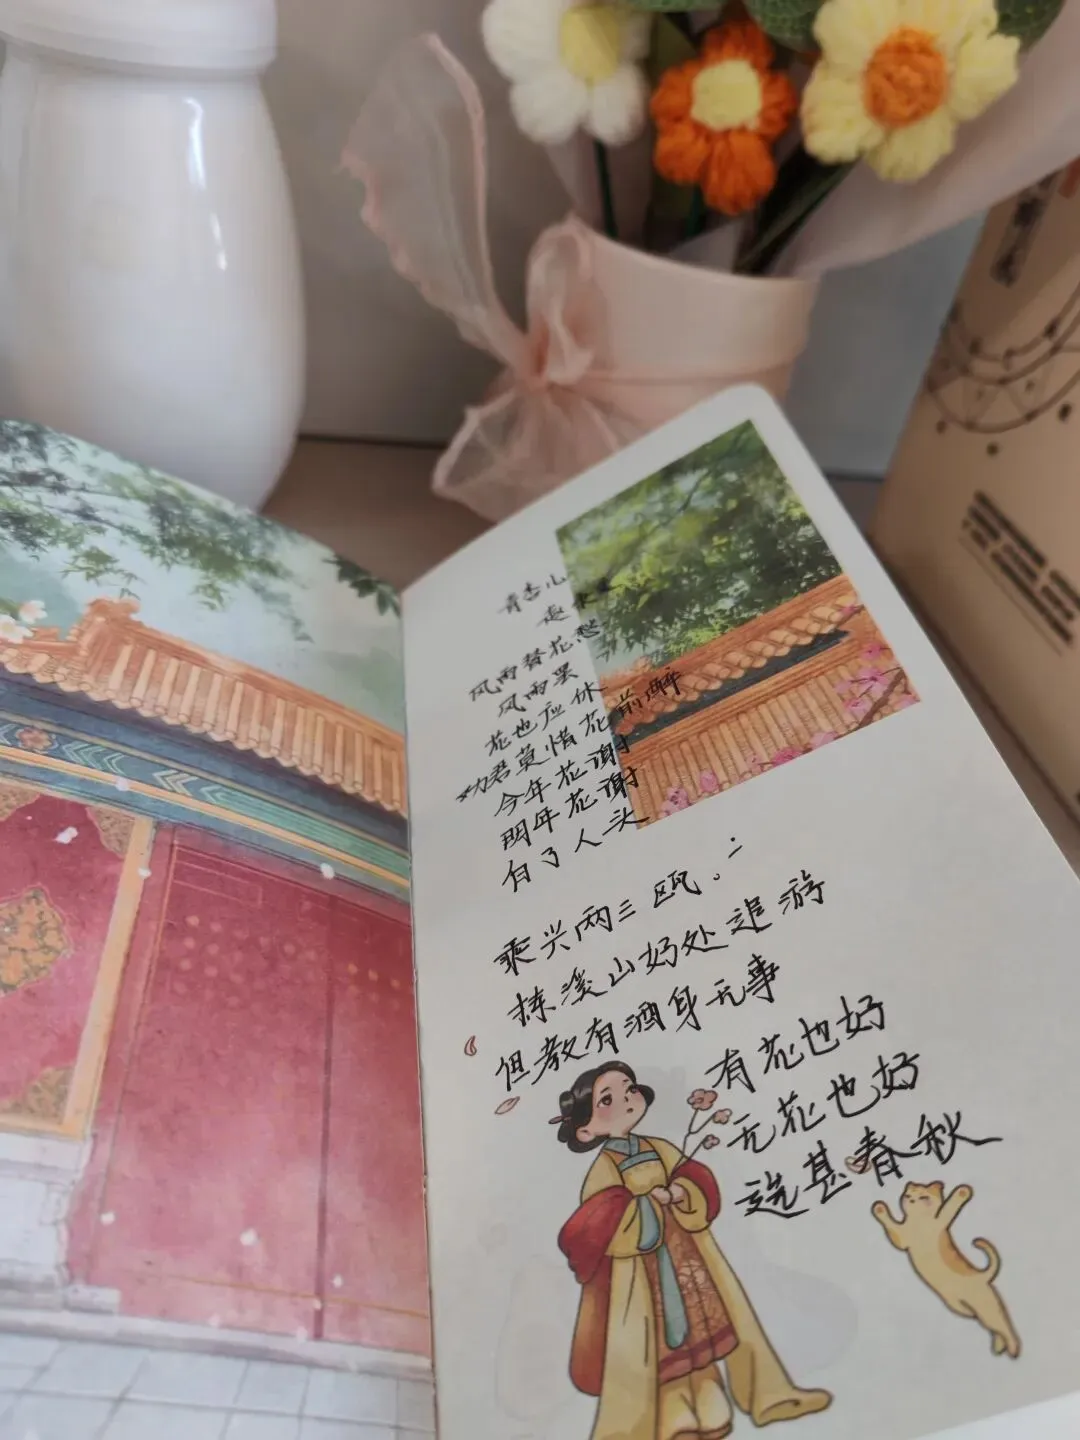 青杏儿
风雨替花愁
风雨罢
花也应休
劝君莫惜花前醉
今年花谢
明年花谢
白了人头
乘兴两三瓯。
拣溪山好处追游
但教有酒身无事
有花也好
无花也好
选甚春秋